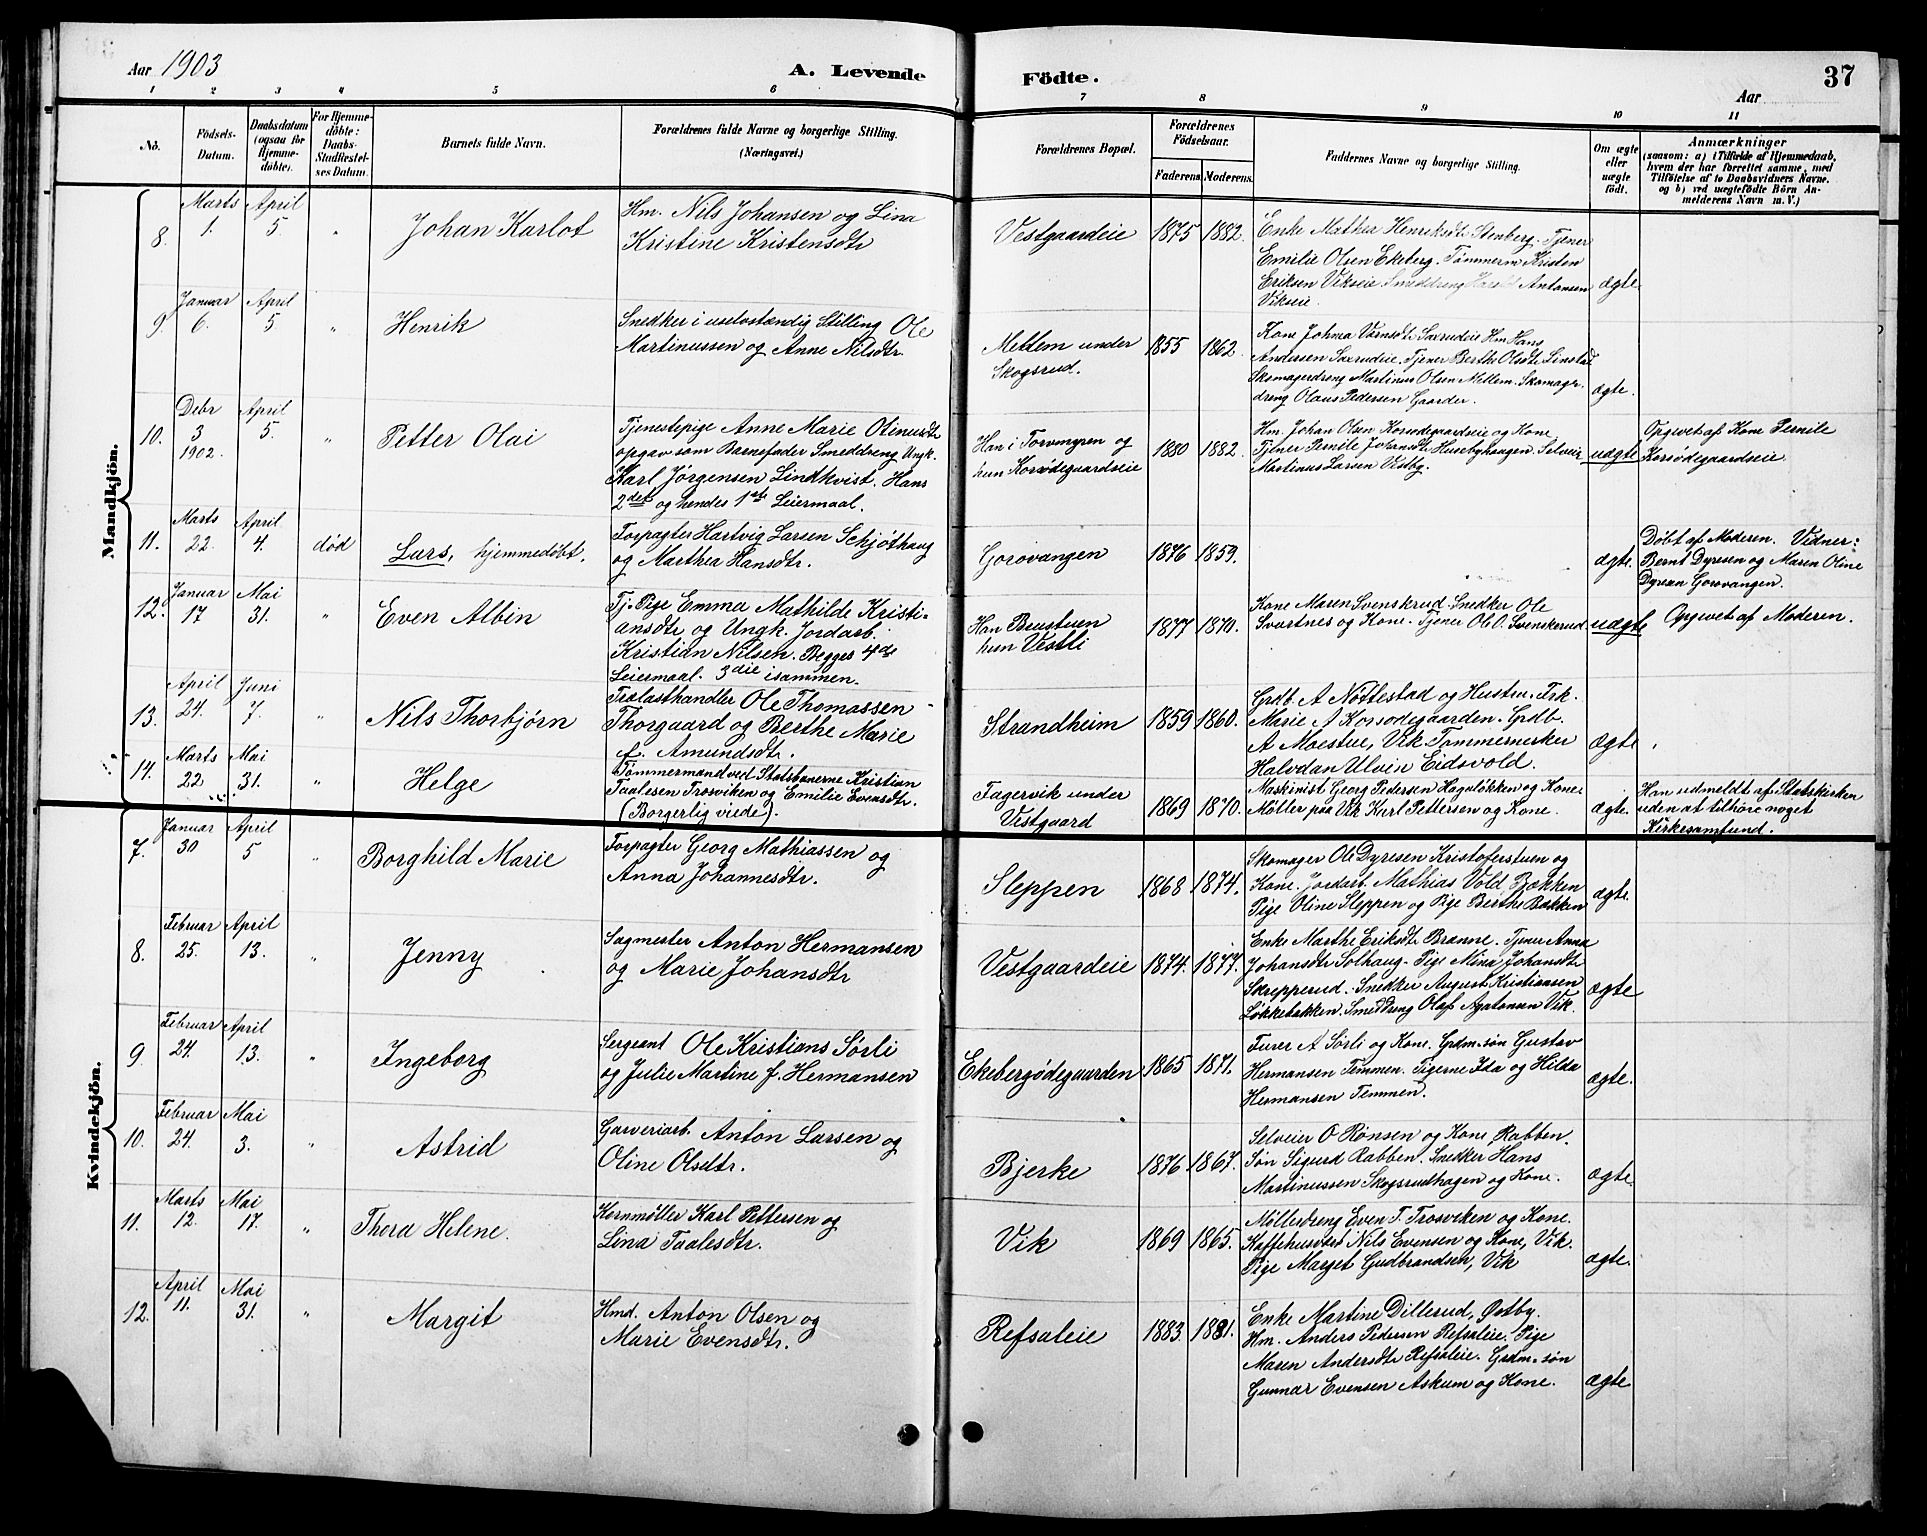 Aar 1903
A. Levende
Födte.
37
Aar
1 2 3 4 5 6 7 8 9 10 11
No.
Födsels-
Datum.
Daabsdatum
(ogsaa for
Hjemme-
döbte).
For Hjemme-
döbte:
Daabs-
Stadfæstel-
ses Datum.
Barnets fulde Navn.
Forældrenes fulde Navne og borgerlige Stilling.
(Næringsvei.)
Forældrenes Bopæl.
Forældrenes
Födselsaar.
Faderens. Moderens.
Faddernes Navne og borgerlige Stilling.
Om ægte
eller
uægte
födt.
Anmærkninger
(saasom: a) i Tilfælde af Hjemmedaab,
hvem der har forrettet samme, med
Tilföielse af to Daabsvidners Navne,
og b) ved uægtefödte Börn An-
melderens Navn m. V.)
Mandkjön.
8. Marts 1. April 5. " Johan Karlot
Hm. Nils Johansen og Lina
Kristine Kristensdtr
Vestgaardeie 1875 1882.
Enke Mathea Henriksdtr Stenberg. Tjener
Emilie Olsen Ekeberg. Tømmerm Kristen
Eriksen Vikseie. Smeddreng Harald Antonsen
Vikseie.
ægte.
9. Januar 6. April 5 " Henrik
Snedker i uselvstændig Stilling Ole
Martinussen og Anne Nilsdtr.
Mellem under
Skogsrud.
1855 1862.
Kone Johna Værnsdtr Saxrudeie Hm Hans
Andersen Saxrudeie. Tjener Berthe Olsdtr Linstad
Skomagerdreng Martinus Olsen Mellem. Skomager-
dreng Olaus Pedersen Gaarder.
ægte.
10. Debr 3 1902. April 5. " Petter Olai
Tjenestepige Anne Marie Olinusdtr
opgav som Barnefader Smeddreng Ungk.
Karl Jørgensen Lindkvist. Hans
2det og hendes 1ste Leiermaal.
Han i Torvmyren og
hun Korsødegaardseie
1880 1882.
Hm. Johan Olsen Korsodegaardseie og Kone
Tjener Pernile Johansdtr Husebyhaugen. Selveier
Martinus Larsen Vestby.
uægte
Opgivet af Kone Pernile
Korsødegaardseie
11. Marts 22. April 4. død Lars, hjemmedøbt.
Forpagter Hartvig Larsen Schjøthaug
og Marthea Hansdtr.
Gorovangen 1876 1859.
ægte.
Døbt af Moderen. Vidner:
Bernt Dyresen og Maren Oline
Dyresen Gorovangen.
12. Januar 17 Mai 31. " Even Albin
Tj. Pige Emma Mathilde Kristi-
ansdtr og Ungk. Jordarb.
Kristian Nilsen. Begges 4de
Leiermaal. 3die isammen.
Han Brustuen
hun Vestli
1877 1870.
Kone Maren Svenskrud. Snedker Ole
Svartnes og Kone. Tjener Ole O. Svenskerud
uægte
Opgivet af Moderen.
13. April 24. Juni 7. " Nils Thorbjørn
Trælasthandler Ole Thomassen
Thorgaard og Berthe Marie
f. Amundsdtr.
Strandheim 1859 1860.
Grdb. A Nøttestad og Hustru. Frk.
Marie A Korsodegaarden. Grdb.
A Moestue, Vik. Tømmermerker
Halvdan Ulvin Eidsvold.
ægte
14. Marts 22 Mai 31. " Helge
Tømmermand ved Statsbanerne Kristian
Taalesen Trosviken og Emilie Evensdtr.
(Borgerlig viede).
Fagervik under
Vestgaard
1869 1870.
Maskinist Georg Pedersen Hageløkken og Kone.
Møller paa Vik Karl Pettersen og Kone.
ægte.
Han udmeldt af Statskirken
uden at tilhøre noget
Kirkesamfund.
Kvindekjön.
7. Januar 30 April 5 " Borghild Marie
Forpagter Georg Mathiassen og
Anna Johannesdtr.
Sleppen 1868 1874.
Skomager Ole Dyresen Kristoferstuen og
Kone. Jordarb. Mathias Vold, Bækken
Pige Oline Sleppen og Pige Berthe Bækken
ægte.
8. Februar 25. April 13. " Jenny
Sagmester Anton Hermansen
og Marie Johansdtr
Vestgaardeie 1874. 1877.
Enke Marthe Eriksdtr Brænne. Tjener Anna
Johansdtr Solhaug. Pige Mina Johansdtr
Skrepperud. Snikker August Kristiansen
Løkkebakken. Smeddreng Olaf Agatonsen Vik.
ægte
9 Februar 24. April 13. " Ingeborg
Sergeant Ole Kristians Sørli
og Julie Martine f. Hermansen
Ekebergødegaarden 1865 1871.
Furer A Sørli og Kone. Grdm.søn Gustav
Hermansen Temmen. Pigerne Ida og Hilda
Hermansen Temmen.
ægte.
10. Februar 24. Mai 3. " Astrid
Garveriarb. Anton Larsen og
Oline Olsdtr.
Bjerke 1876 1867.
Selveier O Rønsen og Kone Rabben.
Søn Sigurd Rabben. Snedker Hans
Martinussen Skogsrudhagen og Kone.
ægte.
11. Marts 12. Mai 17. " Thora Helene.
Kornmøller Karl Pettersen og
Lina Taalesdtr.
Vik 1869 1865.
Møllerdreng Even T. Trosviken og Kone.
Kaffehusvært Nils Evensen og Kone, Vik.
Pige Marget Gudbrandsen, Vik
ægte.
12. April 11. Mai 31. " Margit
Hmd. Anton Olsen og
Marie Evensdtr.
Refsaleie 1883. 1881.
Enke Martine Dillerud, Østby.
Hm. Anders Pedersen Refsaleie. Pige
Maren Andersdtr Refsaleie. Grdm.søn
Gunnar Evensen Askum og Kone.
ægte